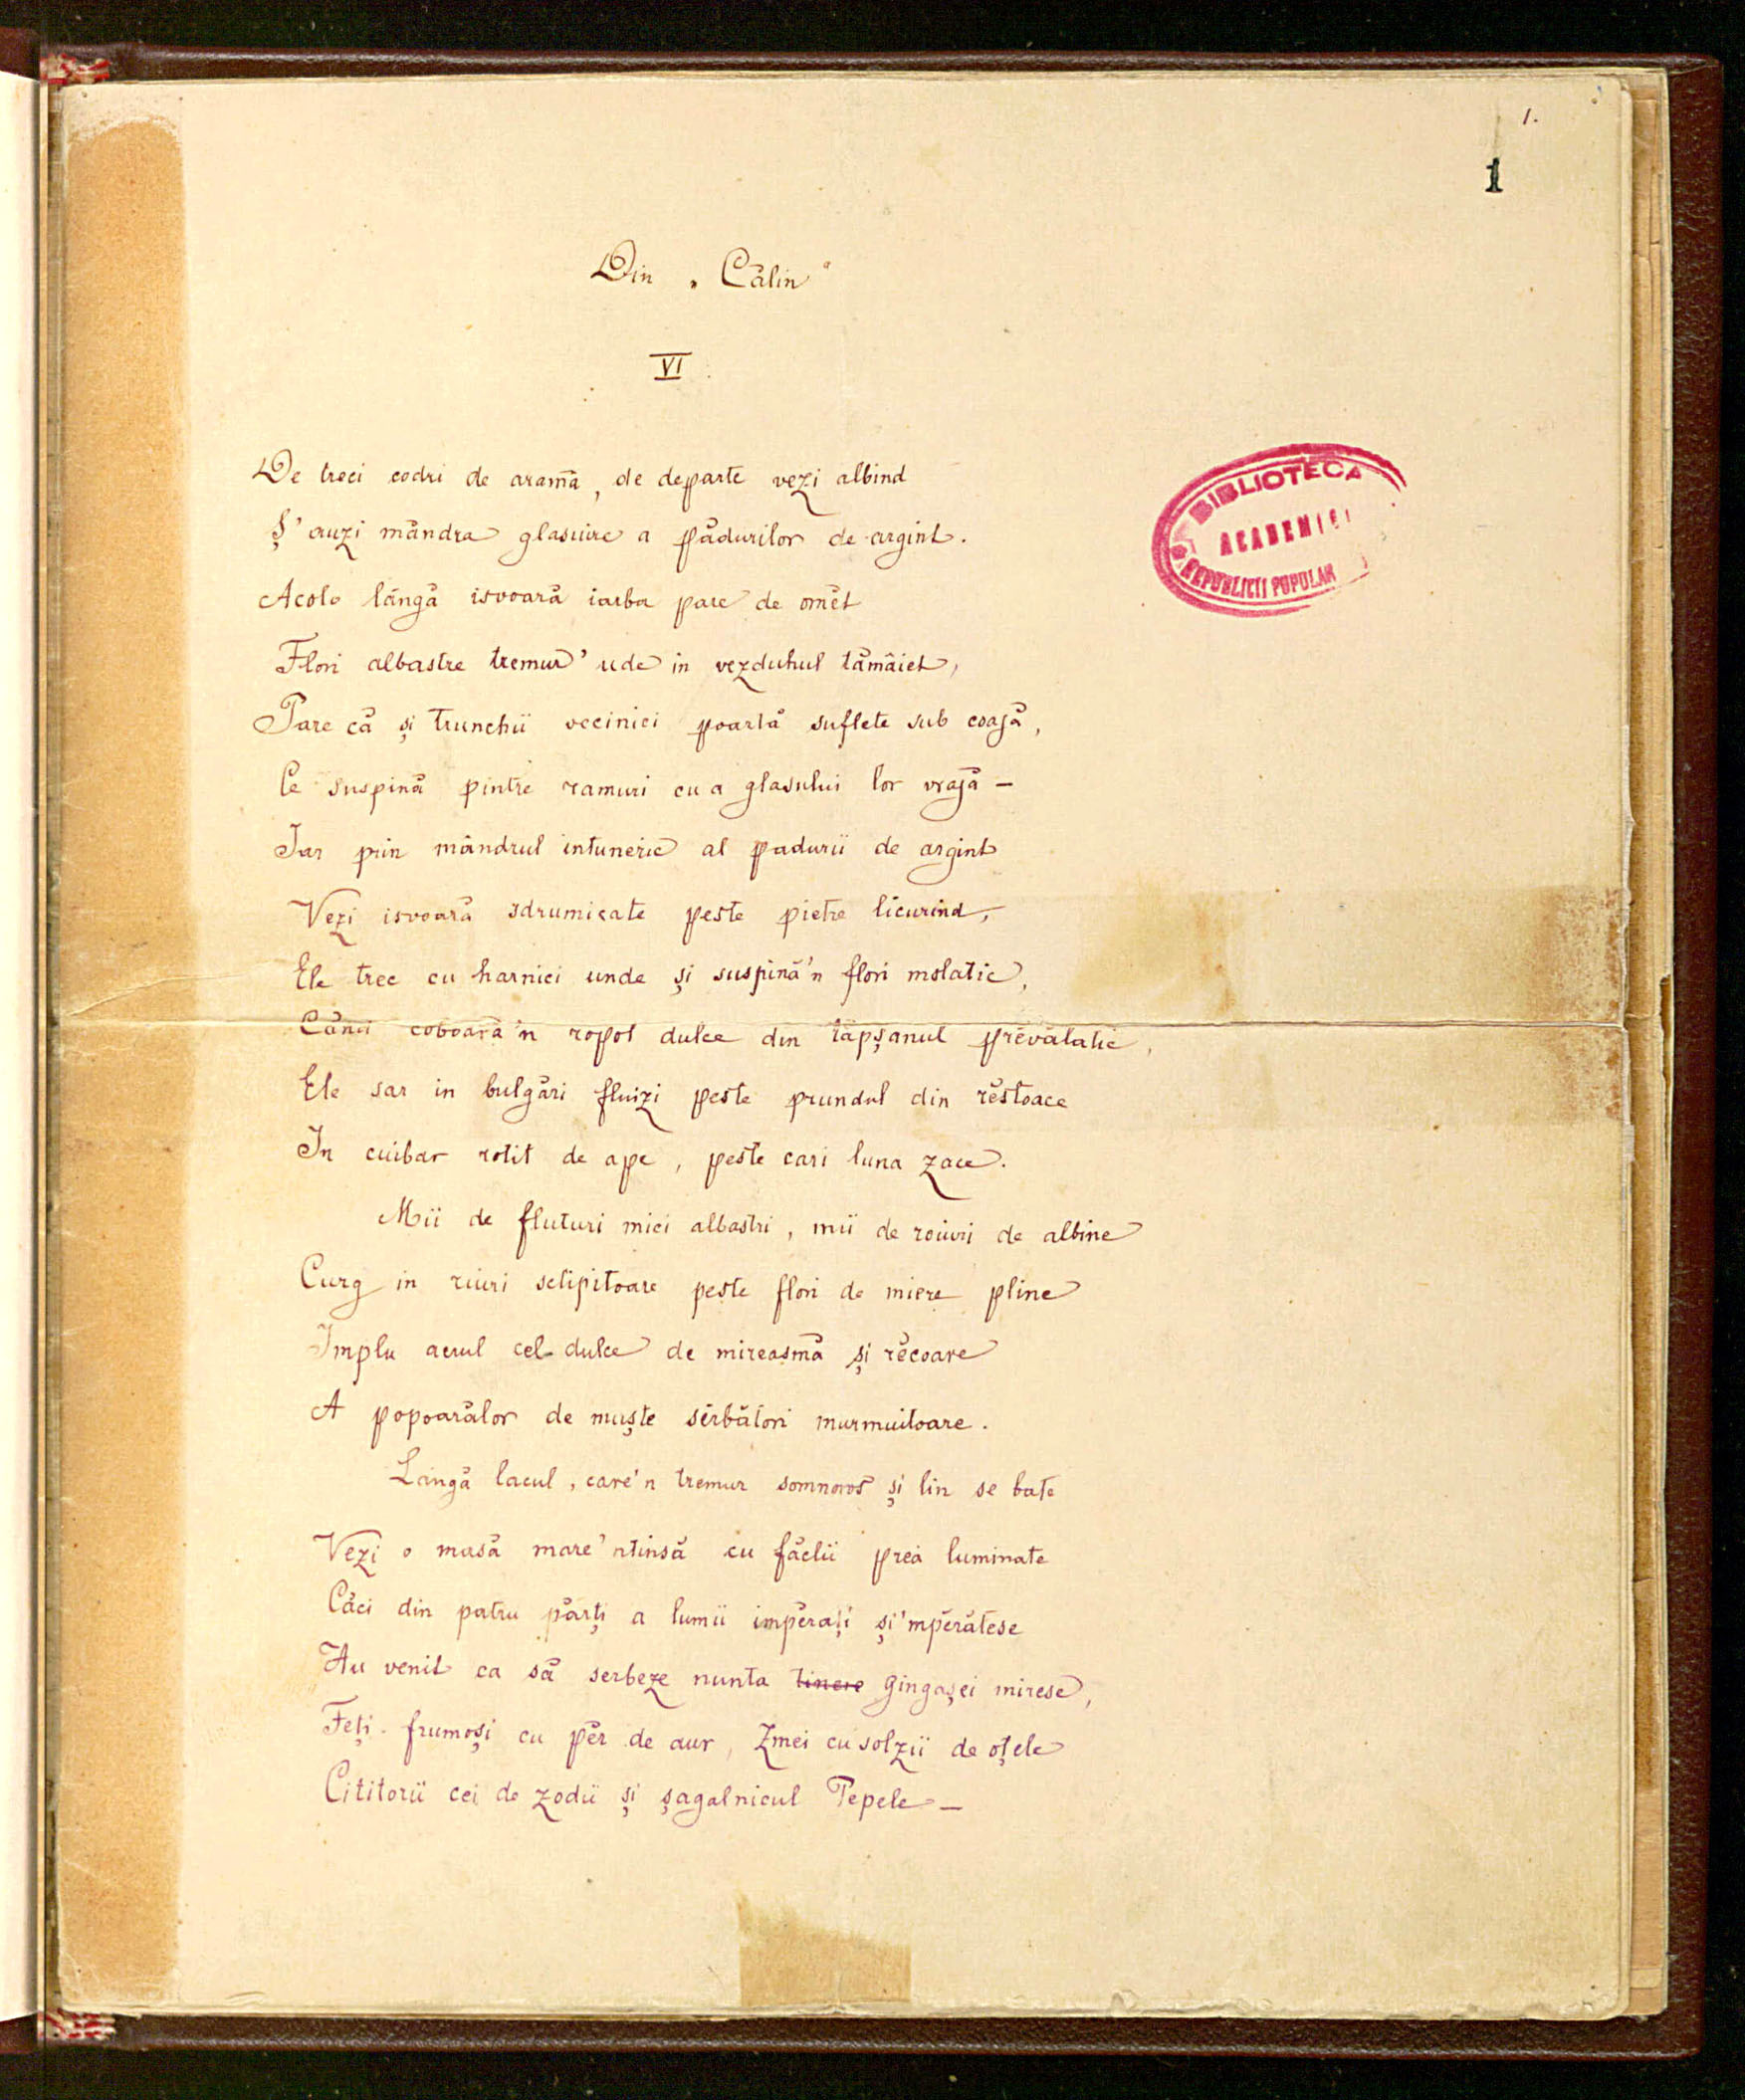 1.
1
Din „Călin“
VI
De treci codri de aramă, de departe vezi albind
Ș'auzi mândra glasuire a pădurilor de argint.
Acolo lângă isvoară iarba pare de omĕt
Flori albastre tremur' ude in vezduhul tămâiet,
Pare că și trunchii vecinici poartă suflete sub coajă,
Ce suspină pintre ramuri cu a glasului lor vrajă –
Iar prin mândrul intuneric al padurii de argint
Vezi isvoară sdrumicate peste pietre licurind,
Ele trec cu harnici unde și suspină'n flori molatic,
Când coboară'n ropot dulce din tăpșanul prĕvălatic,
Ele sar in bulgări fluizi peste prundul din rĕstoace
In cuibar rotit de ape, peste cari luna zace.
Mii de fluturi mici albastri, mii de roiuri de albine
Curg in riuri sclipitoare peste flori de miere pline
Implu aerul cel dulce de mireasmă și rĕcoare
A popoarălor de muște sĕrbători murmuitoare.
Langă lacul, care'n tremur somnoros și lin se bate
Vezi o masă mare'ntinsă cu făclii prea luminate
Căci din patru părți a lumii impĕrați și'mpĕrătese
Au venit ca să serbeze nunta tinere gingașei mirese,
Feți-frumoși cu pĕr de aur, Zmei cu solzii de oțele
Cititorii cei de zodii și șagalnicul Pepele –
BIBLIOTECA
ACADEMIEI
REPUBLICII POPULAR